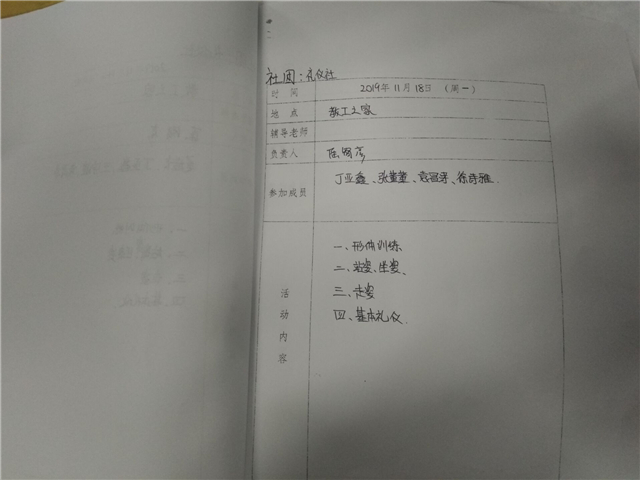 社团：礼仪社
时 间 2019年11月18日 （周一）
地 点 教工之家
辅导老师
负责人
参加成员 丁亚鑫、张董董、袁冠浔、徐诗雅.
活动内容
一、形体训练
二、站姿、坐姿、
三、走姿
四、基本礼仪.